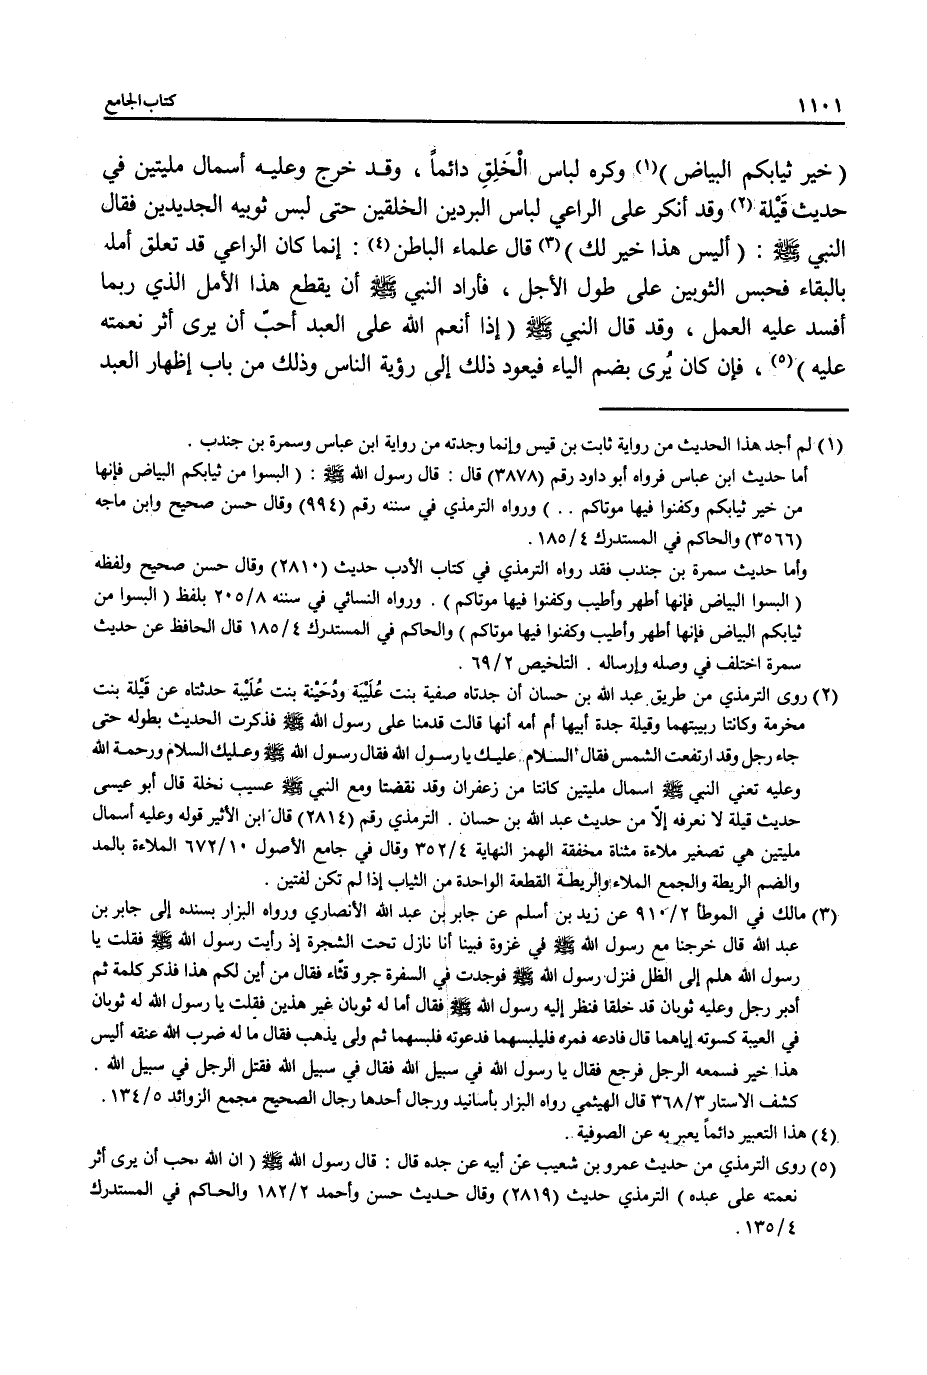 ١١٠١ كتاب الجامع
( خير ثيابكم البياض )(١) وكره لباس الْخَلِقِ دائماً ، وقد خرج وعليه أسمال مليتين في
حديث قَيْلة (٢) وقد أنكر على الراعي لباس البردين الخلقين حتى لبس ثوبيه الجديدين فقال
النبي ﷺ : ( أليس هذا خير لك )(٣) قال علماء الباطن(٤) : إنما كان الراعي قد تعلق أمله
بالبقاء فحبس الثوبين على طول الأجل ، فأراد النبي ﷺ أن يقطع هذا الأمل الذي ربما
أفسد عليه العمل ، وقد قال النبي ﷺ ( إذا أنعم الله على العبد أحبّ أن يرى أثر نعمته
عليه )(٥) ، فإن كان يُرى بضم الياء فيعود ذلك إلى رؤية الناس وذلك من باب إظهار العبد
(١) لم أجد هذا الحديث من رواية ثابت بن قيس وإنما وجدته من رواية ابن عباس وسمرة بن جندب .
أما حديث ابن عباس فرواه أبو داود رقم (٣٨٧٨) قال : قال رسول الله ﷺ : ( البسوا من ثيابكم البياض فإنها
من خير ثيابكم وكفنوا فيها موتاكم . . ) ورواه الترمذي في سننه رقم (٩٩٤) وقال حسن صحيح وابن ماجه
(٣٥٦٦) والحاكم في المستدرك ٤/ ١٨٥ .
وأما حديث سمرة بن جندب فقد رواه الترمذي في كتاب الأدب حديث (٢٨١٠) وقال حسن صحيح ولفظه
( البسوا البياض فإنها أطهر وأطيب وكفنوا فيها موتاكم ) . ورواه النسائي في سننه ٨/ ٢٠٥ بلفظ ( البسوا من
ثيابكم البياض فإنها أطهر وأطيب وكفنوا فيها موتاكم ) والحاكم في المستدرك ٤/ ١٨٥ قال الحافظ عن حديث
سمرة اختلف في وصله وإرساله . التلخيص ٢/ ٦٩ .
(٢) روى الترمذي من طريق عبد الله بن حسان أن جدتاه صفية بنت عُلَيْبَة ودُحَيْنة بنت عُلَيْبة حدثتاه عن قَيْلة بنت
مخرمة وكانتا ربيبتهما وقيلة جدة أبيها أم أمه أنها قالت قدمنا على رسول الله ﷺ فذكرت الحديث بطوله حتى
جاء رجل وقد ارتفعت الشمس فقال السلام عليك يا رسول الله فقال رسول الله ﷺ وعليك السلام ورحمة الله
وعليه تعني النبي ﷺ اسمال مليتين كانتا من زعفران وقد نقضتا ومع النبي ﷺ عسيب نخلة قال أبو عيسى
حديث قيلة لا نعرفه إلاّ من حديث عبد الله بن حسان . الترمذي رقم (٢٨١٤) قال ابن الأثير قوله وعليه أسمال
مليتين هي تصغير ملاءة مثناة مخففة الهمز النهاية ٤/ ٣٥٢ وقال في جامع الأصول ١٠/ ٦٧٢ الملاءة بالمد
والضم الريطة والجمع الملاء والريطة القطعة الواحدة من الثياب إذا لم تكن لفتين .
(٣) مالك في الموطأ ٢/ ٩١٠ عن زيد بن أسلم عن جابر بن عبد الله الأنصاري ورواه البزار بسنده إلى جابر بن
عبد الله قال خرجنا مع رسول الله ﷺ في غزوة فبينا أنا نازل تحت الشجرة إذ رأيت رسول الله ﷺ فقلت يا
رسول الله هلم إلى الظل فنزل رسول الله ﷺ فوجدت في السفرة جرو قثّاء فقال من أين لكم هذا فذكر كلمة ثم
أدبر رجل وعليه ثوبان قد خلقا فنظر إليه رسول الله ﷺ فقال أما له ثوبان غير هذين فقلت يا رسول الله له ثوبان
في العيبة كسوته إياهما قال فادعه فمره فليلبسهما فدعوته فلبسهما ثم ولى يذهب فقال ما له ضرب الله عنقه أليس
هذا خير فسمعه الرجل فرجع فقال يا رسول الله في سبيل الله فقال في سبيل الله فقتل الرجل في سبيل الله .
كشف الاستار ٣/ ٣٦٨ قال الهيثمي رواه البزار بأسانيد ورجال أحدها رجال الصحيح مجمع الزوائد ٥/ ١٣٤ .
(٤) هذا التعبير دائماً يعبر به عن الصوفية .
(٥) روى الترمذي من حديث عمرو بن شعيب عن أبيه عن جده قال : قال رسول الله ﷺ ( ان الله يحب أن يرى أثر
نعمته على عبده ) الترمذي حديث (٢٨١٩) وقال حديث حسن وأحمد ٢/ ١٨٢ والحاكم في المستدرك
٤/ ١٣٥ .